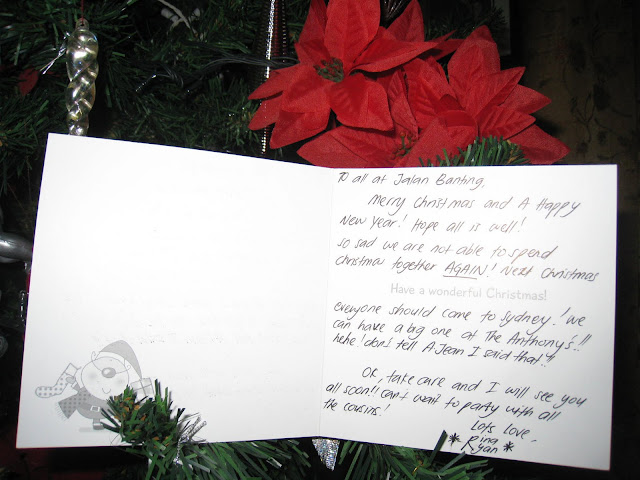 To all at Jalan Banting,
Merry Christmas and A Happy
New Year! Hope all is well!
So sad we are not able to spend
Christmas together AGAIN! Next Christmas
Have a wonderful Christmas!
everyone should come to Sydney! We
can have a big one at The Anthony's!!
hehe! don't tell A.Jean I said that!!
OK take care and I will see you
all soon!! can't wait to party with all
the cousins!
Lots Love,
*Rina
Ryan*